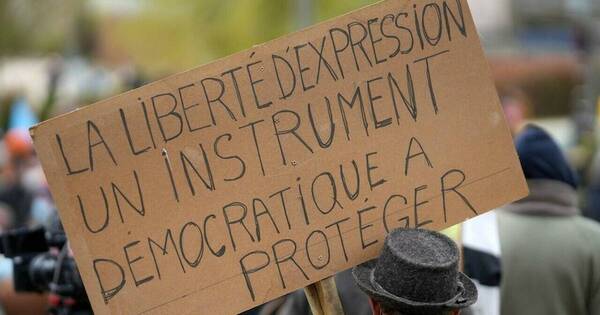 LA LIBERTÉ D'EXPRESSION
UN INSTRUMENT
DÉMOCRATIQUE A
PROTÉGER